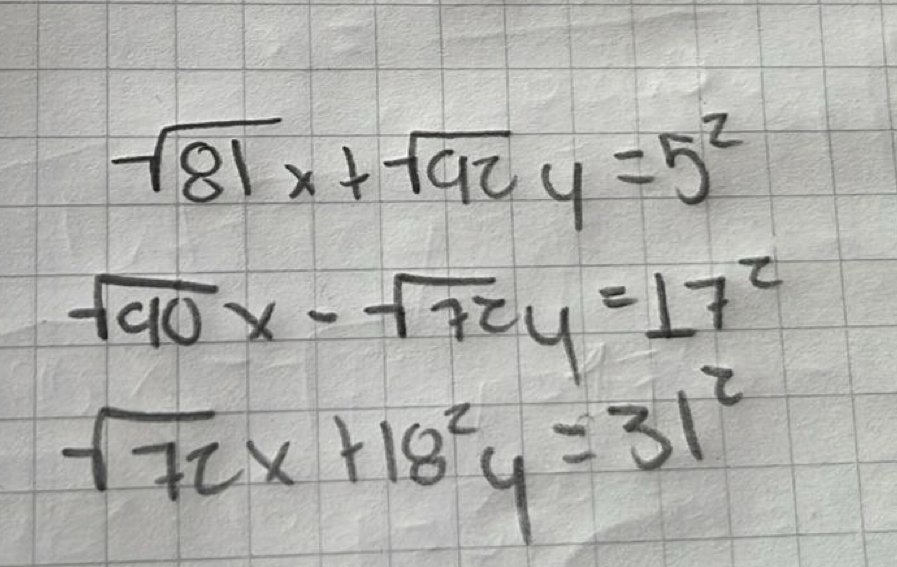 √81 x + √92 y = 5²
√90 x - √72 y = 17²
√72 x + 18² y = 31²